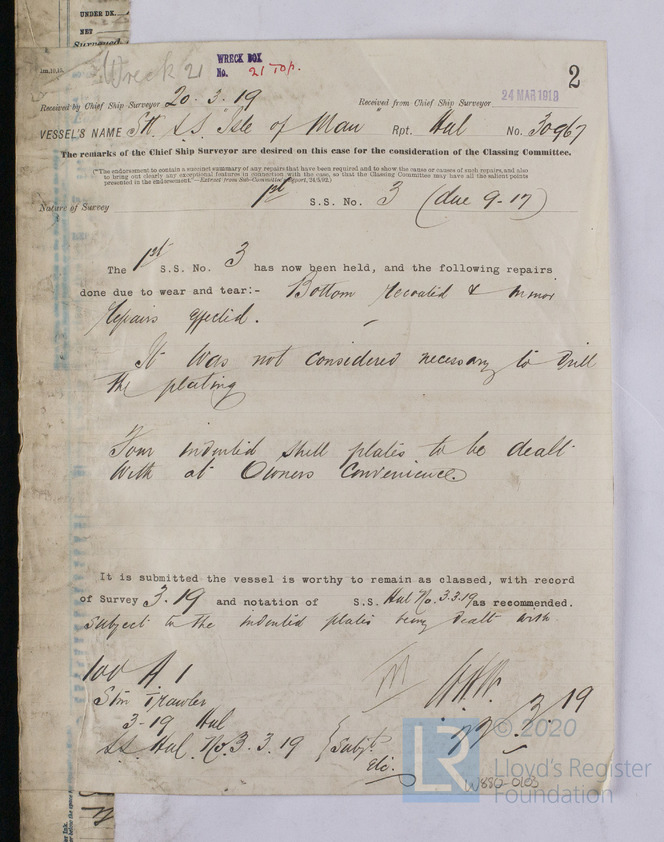 UNDER DK.
NET
Surveyed
Wreck 21
WRECK BOX
No. 21 Top.
2
Received by Chief Ship Surveyor 20.3.19
Received from Chief Ship Surveyor 24 MAR 1919
VESSEL'S NAME SS Isle of Man Rpt. Hul No. 30967
The remarks of the Chief Ship Surveyor are desired on this case for the consideration of the Classing Committee.
("The endorsement to contain a succinct summary of any repairs that have been required and to show the cause or causes of such repairs, and also
to bring out clearly any exceptional features in connection with the case, so that the Classing Committee may have all the salient points
presented in the endorsement."—Extract from Sub-Committee's Report, 24/5/92.)
Nature of Survey 1st S.S. No. 3 (due 9-17)
The 1st S.S. No. 3 has now been held, and the following repairs
done due to wear and tear:- Bottom recoated & minor
repairs effected.
It was not considered necessary to drill
the plating
Four indented shell plates to be dealt
with at Owners convenience.
It is submitted the vessel is worthy to remain as classed, with record
of Survey 3.19 and notation of S.S. Hul No. 3.3.19 as recommended.
subject to the indented plates being dealt with.
100 A 1
Stm Trawler
3-19 Hul
S.S. Hul. No. 3. 3. 19 { Subjt.
etc.
3.19
© 2020
LR
Lloyd's Register
Foundation
W880-0103